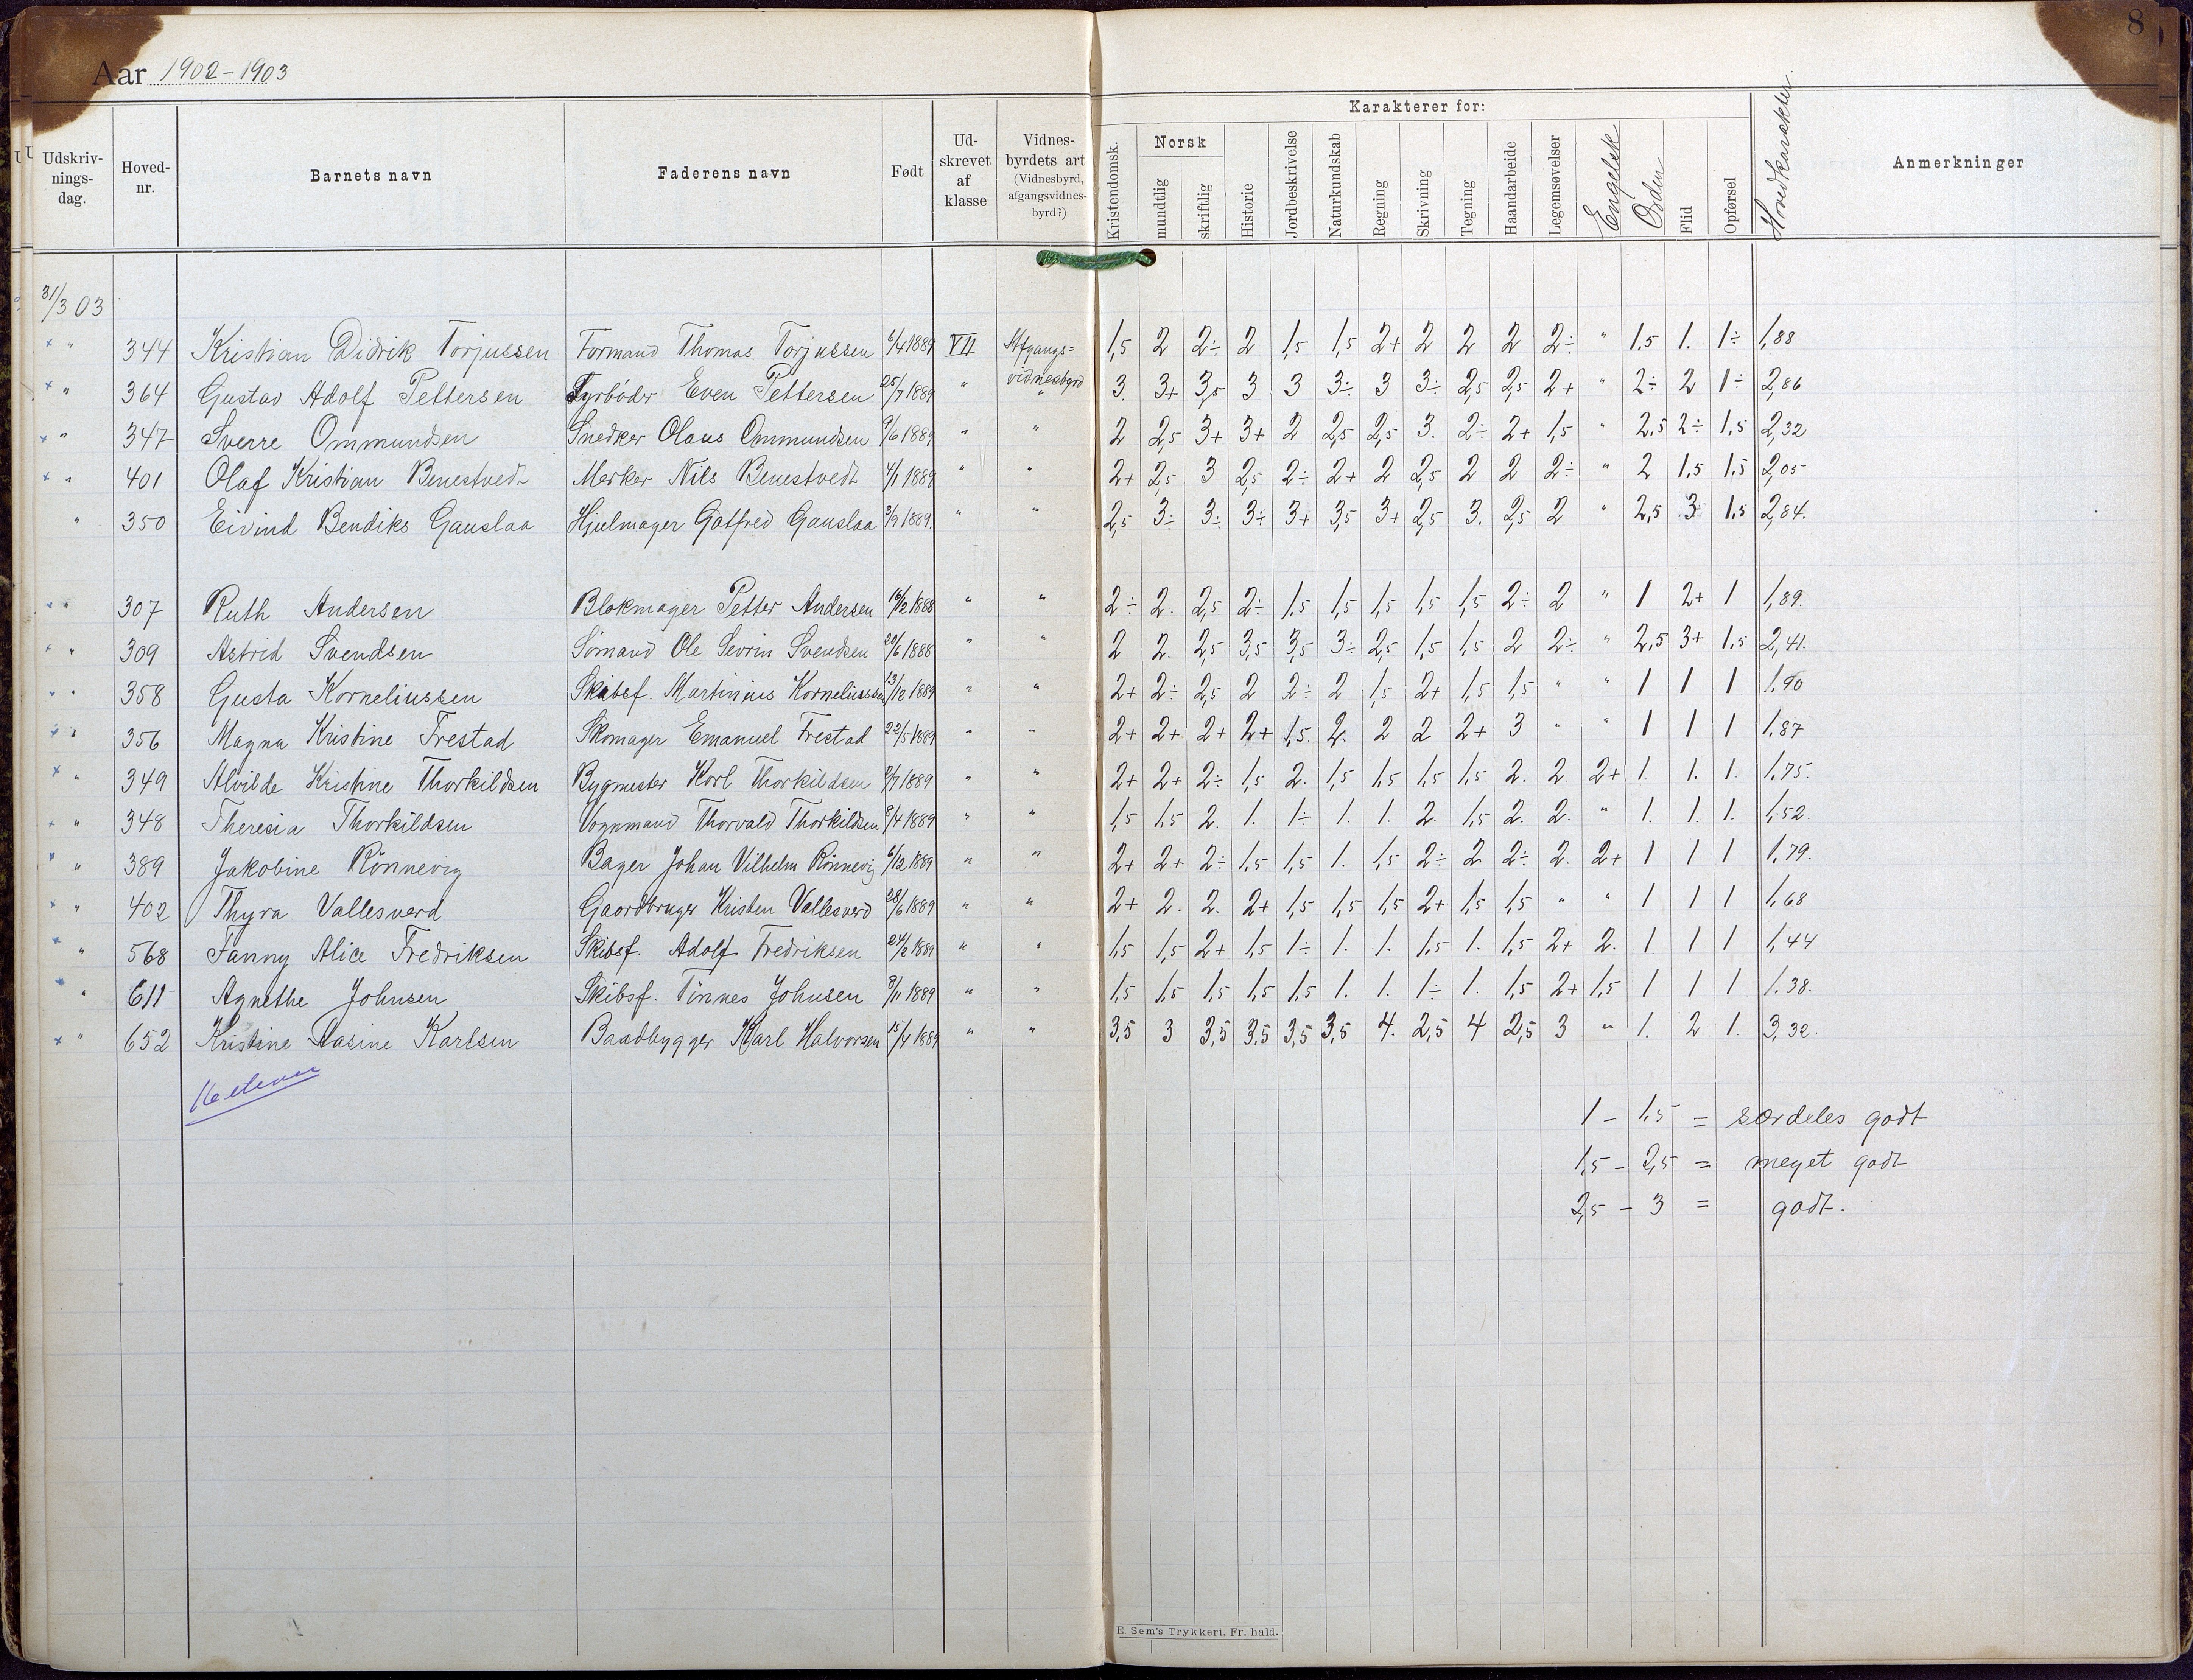 8
Aar 1902-1903
Udskriv-nings-dag. Hoved-nr. Barnets navn Faderens navn Født Ud-skrevet af klasse Vidnes-byrdets art (Vidnesbyrd, afgangsvidnes-byrd?) Karakterer for: Kristendomsk. Norsk mundtlig skriftlig Historie Jordbeskrivelse Naturkundskab Regning Skrivning Tegning Haandarbeide Legemsøvelser Engelsk Orden Flid Opførsel Hovedkarakter. Anmerkninger
31/3 03
+ " 344 Kristian Didrik Torjussen Formand Thomas Torjussen 6/4 1889 VII Afgangs= 1,5 2 2÷ 2 1,5 1,5 2+ 2 2 2 2÷ " 1.5 1. 1÷ 1,88
vidnesbyrd
+ " 364 Gustav Adolf Pettersen Fyrbøder Even Pettersen 25/7 1889 " " 3. 3+ 3,5 3 3 3÷ 3 3÷ 2,5 2,5 2+ " 2÷ 2 1÷ 2,86
+ " 347 Sverre Ommundsen Snedker Olaus Ommundsen 9/6 1889 " " 2 2,5 3+ 3+ 2 2,5 2,5 3. 2÷ 2+ 1,5 " 2.5 2÷ 1.5 2,32
+ " 401 Olaf Kristian Benestvedt Merker Nils Benestvedt 4/1 1889 " " 2+ 2,5 3 2,5 2÷ 2+ 2 2,5 2 2 2÷ " 2 1.5 1.5 2,05
" 350 Eivind Bendiks Gauslaa Hjulmager Gotfred Gauslaa 3/9 1889. " " 2,5 3÷ 3÷ 3÷ 3+ 3,5 3+ 2,5 3. 2,5 2 " 2,5 3 1.5 2,84.
+ " 307 Ruth Andersen Blokmager Petter Andersen 16/12 1888 " " 2÷ 2. 2,5 2÷ 1,5 1,5 1,5 1,5 1,5 2÷ 2 " 1 2+ 1 1,89.
+ " 309 Astrid Svendsen Sømand Ole Sevrin Svendsen 20/6 1888 " " 2 2. 2,5 3,5 3,5 3÷ 2,5 1,5 1,5 2 2÷ " 2,5 3+ 1.5 2,41.
+ " 358 Gusta Korneliussen Skibsf. Martinius Korneliussen 13/12 1889 " " 2+ 2÷ 2,5 2 2÷ 2 1,5 2+ 1,5 1,5 " " 1 1 1 1.90
+ " 356 Magna Kristine Frestad Skomager Emanuel Frestad 22/5 1889 " " 2+ 2+ 2+ 2+ 1,5. 2. 2 2 2+ 3 " " 1 1 1 1.87
+ " 349 Alvilde Kristine Thorkildsen Bygmester Karl Thorkildsen 8/7 1889 " " 2+ 2+ 2÷ 1,5 2. 1,5 1,5 1,5 1,5 2. 2. 2+ 1. 1. 1. 1.75.
+ " 348 Theresia Thorkildsen Vognmand Thorvald Thorkildsen 8/4 1889 " " 1,5 1,5 2. 1. 1÷ 1. 1. 2. 1,5 2. 2. " 1. 1. 1. 1.52.
+ " 389 Jakobine Rönnevig Bager Johan Vilhelm Rönnevig 6/12 1889 " " 2+ 2+ 2÷ 1,5 1,5 1. 1,5 2÷ 2 2÷ 2. 2+ 1 1 1 1,79.
+ " 402 Thyra Vallesverd Gaardbruger Kristen Vallesverd 28/6 1889 " " 2+ 2. 2. 2+ 1,5 1,5 1,5 2+ 1,5 1,5 " " 1 1 1 1,68
+ " 568 Fanny Alice Fredriksen Skibsf. Adolf Fredriksen 24/2 1889 " " 1,5 1,5 2+ 1,5 1÷ 1. 1. 1,5 1. 1,5 2+ 2. 1 1 1 1,44
+ " 611 Agnethe Johnsen Skibsf. Tönnes Johnsen 8/11 1889 " " 1,5 1,5 1,5 1,5 1,5 1. 1. 1÷ 1. 1,5 2+ 1,5 1 1 1 1.38.
+ " 652 Kristine Aasine Karlsen Baadbygger Karl Halvorsen 15/4 1889 " " 3,5 3 3,5 3,5 3,5 3,5 4. 2,5 4 2,5 3 " 1. 2 1. 3,32.
16 elever
1 - 1.5 = særdeles godt
1,5 - 2,5 = meget godt
2,5 - 3 = godt.
E. Sem's Trykkeri, Fr. hald.